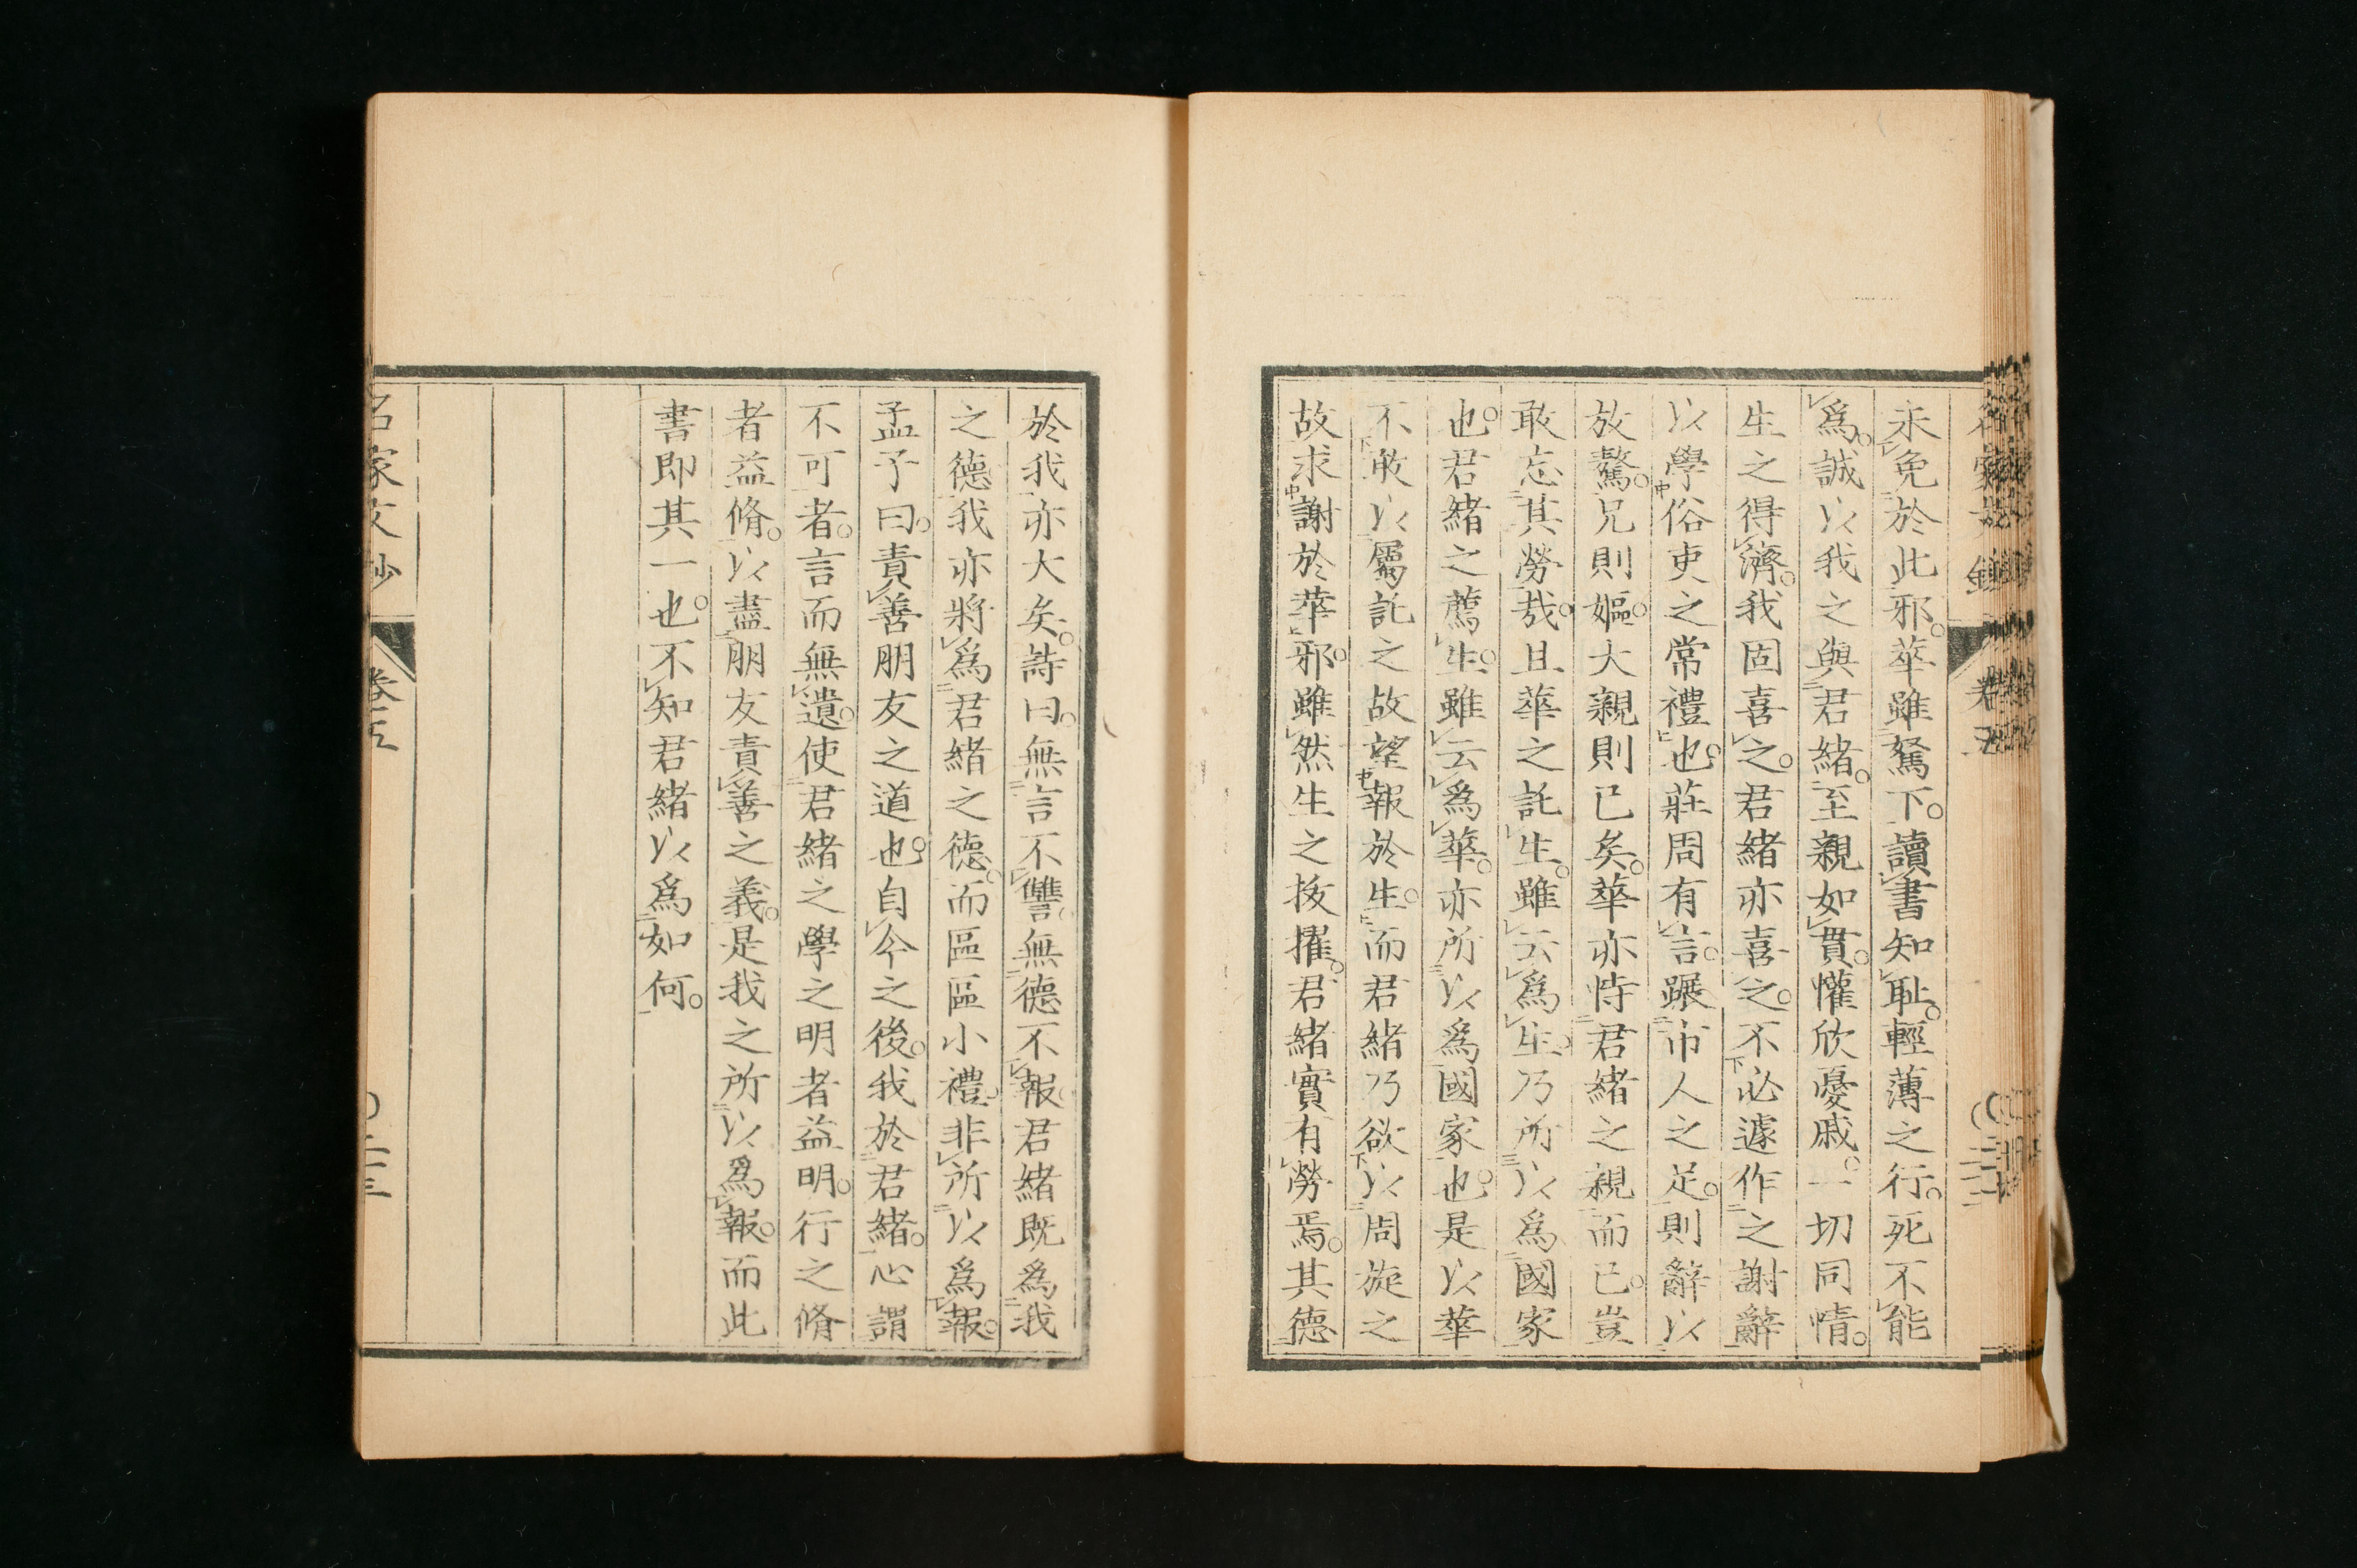 未免於此邪。華雖駑下。讀書知恥。輕薄之行。死不能
爲。誠以我之與君緒。至親如貫。懽欣憂戚。一切同情。
生之得濟。我固喜之。君緒亦喜之。不必遽作之謝辭
以學俗吏之常禮也。莊周有言。蹍市人之足。則辭以
放驁。兄則嫗。大親則已矣。華亦恃君緒之親而已。豈
敢忘其勞哉。且華之託生。雖云爲生。乃所以爲國家
也。君緒之薦生。雖云爲華。亦所以爲國家也。是以華
不敢以屬託之故望報於生。而君緒乃欲以周旋之
故求謝於華邪。雖然生之拔擢。君緒實有勞焉。其德
於我亦大矣。詩曰。無言不讐。無德不報。君緒既爲我
之德。我亦將爲君緒之德。而區區小禮。非所以爲報。
孟子曰。責善朋友之道也。自今之後。我於君緒。心謂
不可者。言而無遺。使君緒之學之明者益明。行之脩
者益脩。以盡朋友責善之義。是我之所以爲報。而此
書即其一也。不知君緒以爲如何。
名家文抄
卷五